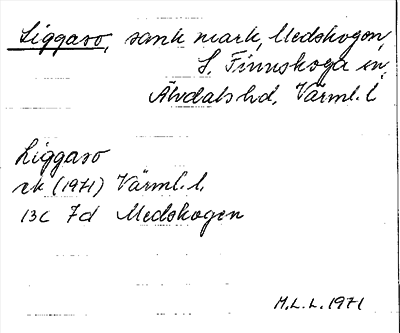 Liggaso, sank mark, Medskogen,
S. Finnskoga sn,
Älvdals hd, Värml. l
Liggaso
ek (1971) Värml. l.
13C 7d Medskogen
M.L.L. 1971